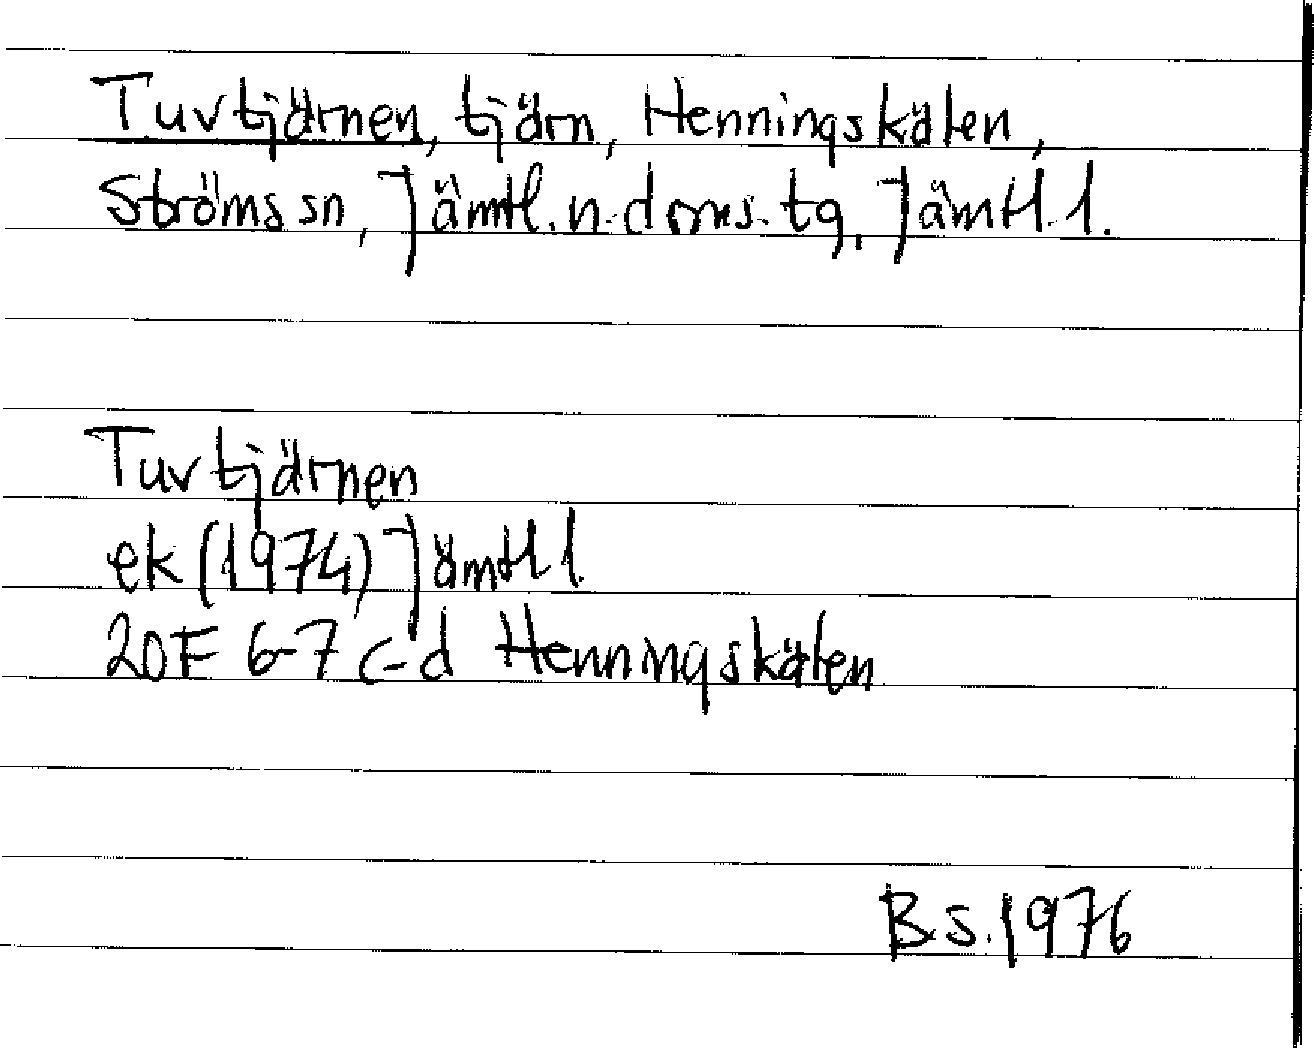 Tuvtjärnen, tjärn, Henningskälen,
Ströms sn, Jämtl. n. doms. tg, Jämtl. l.
Tuvtjärnen
ek (1974) Jämtl l.
20F 6-7 c-d Henningskälen
B.S. 1976